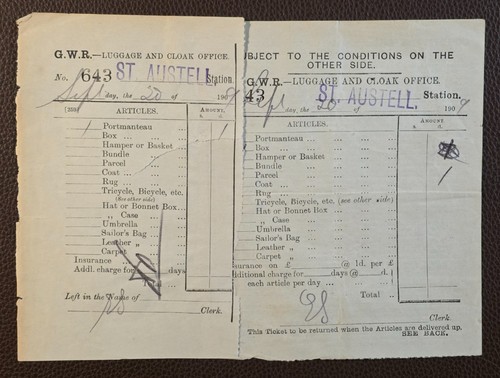 G.W.R.—LUGGAGE AND CLOAK OFFICE.
No. 643 ST. AUSTELL Station.
Sept day, the 20 of 190
(398)
ARTICLES. AMOUNT.
s. d.
1 Portmanteau ... ...
Box ... ...
Hamper or Basket ...
Bundle ... ...
Parcel ... ...
Coat ... ... ...
Rug ... ... ...
Tricycle, Bicycle, etc.
(See other side)
Hat or Bonnet Box ...
„ Case ... ...
Umbrella ... ...
Sailor's Bag ... ...
Leather „ ... ...
Carpet ... ...
Insurance ... ...
Addl. charge for days
Left in the Name of
Clerk.
SUBJECT TO THE CONDITIONS ON THE
OTHER SIDE.
G.W.R.—LUGGAGE AND CLOAK OFFICE.
43 ST. AUSTELL. Station.
Sept day, the 20 of 1909
ARTICLES. AMOUNT.
s. d.
Portmanteau ... ...
Box ... ... ...
Hamper or Basket ...
Bundle ... ...
Parcel ... ...
Coat ... ... ...
Rug ... ... ...
Tricycle, Bicycle, etc. (see other side)
Hat or Bonnet Box ...
„ Case ... ...
Umbrella ... ...
Sailor's Bag ... ...
Leather „ ... ...
Carpet „ ... ...
surance on £ @ 1d. per £
ditional charge for days @ d.
each article per day ... ...
Total ..
Clerk.
This Ticket to be returned when the Articles are delivered up.
SEE BACK.